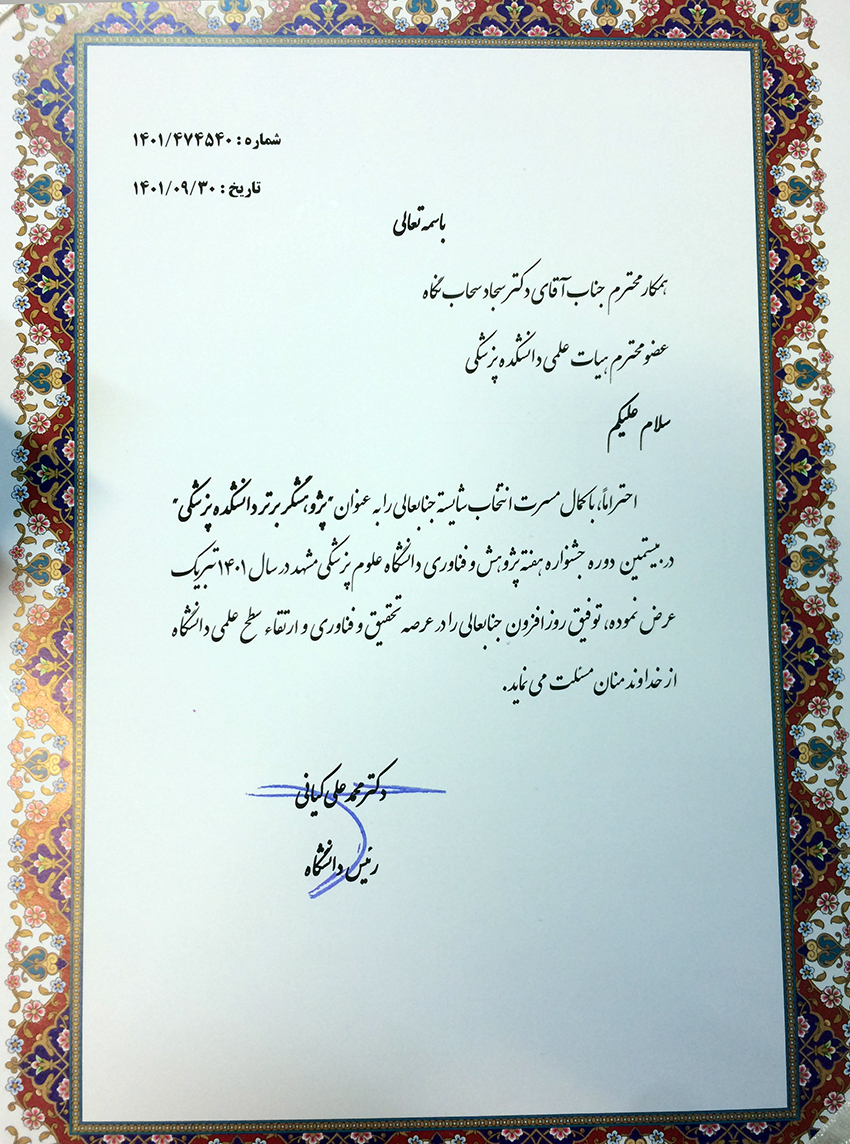 شماره : ۱۴۰۱/۴۷۴۵۴۰
تاریخ : ۱۴۰۱/۰۹/۳۰
باسمه تعالی
همکار محترم جناب آقای دکتر سجاد سحاب نگاه
عضو محترم هیات علمی دانشکده پزشکی
سلام علیکم
احتراماً، با کمال مسرت انتخاب شایسته جنابعالی را به عنوان "پژوهشگر برتر دانشکده پزشکی"
در بیستمین دوره جشنواره هفته پژوهش و فناوری دانشگاه علوم پزشکی مشهد در سال ۱۴۰۱ تبریک
عرض نموده، توفیق روز افزون جنابعالی را در عرصه تحقیق و فناوری و ارتقاء سطح علمی دانشگاه
از خداوند منان مسئلت می نماید.
دکتر محمد علی کیانی
رئیس دانشگاه